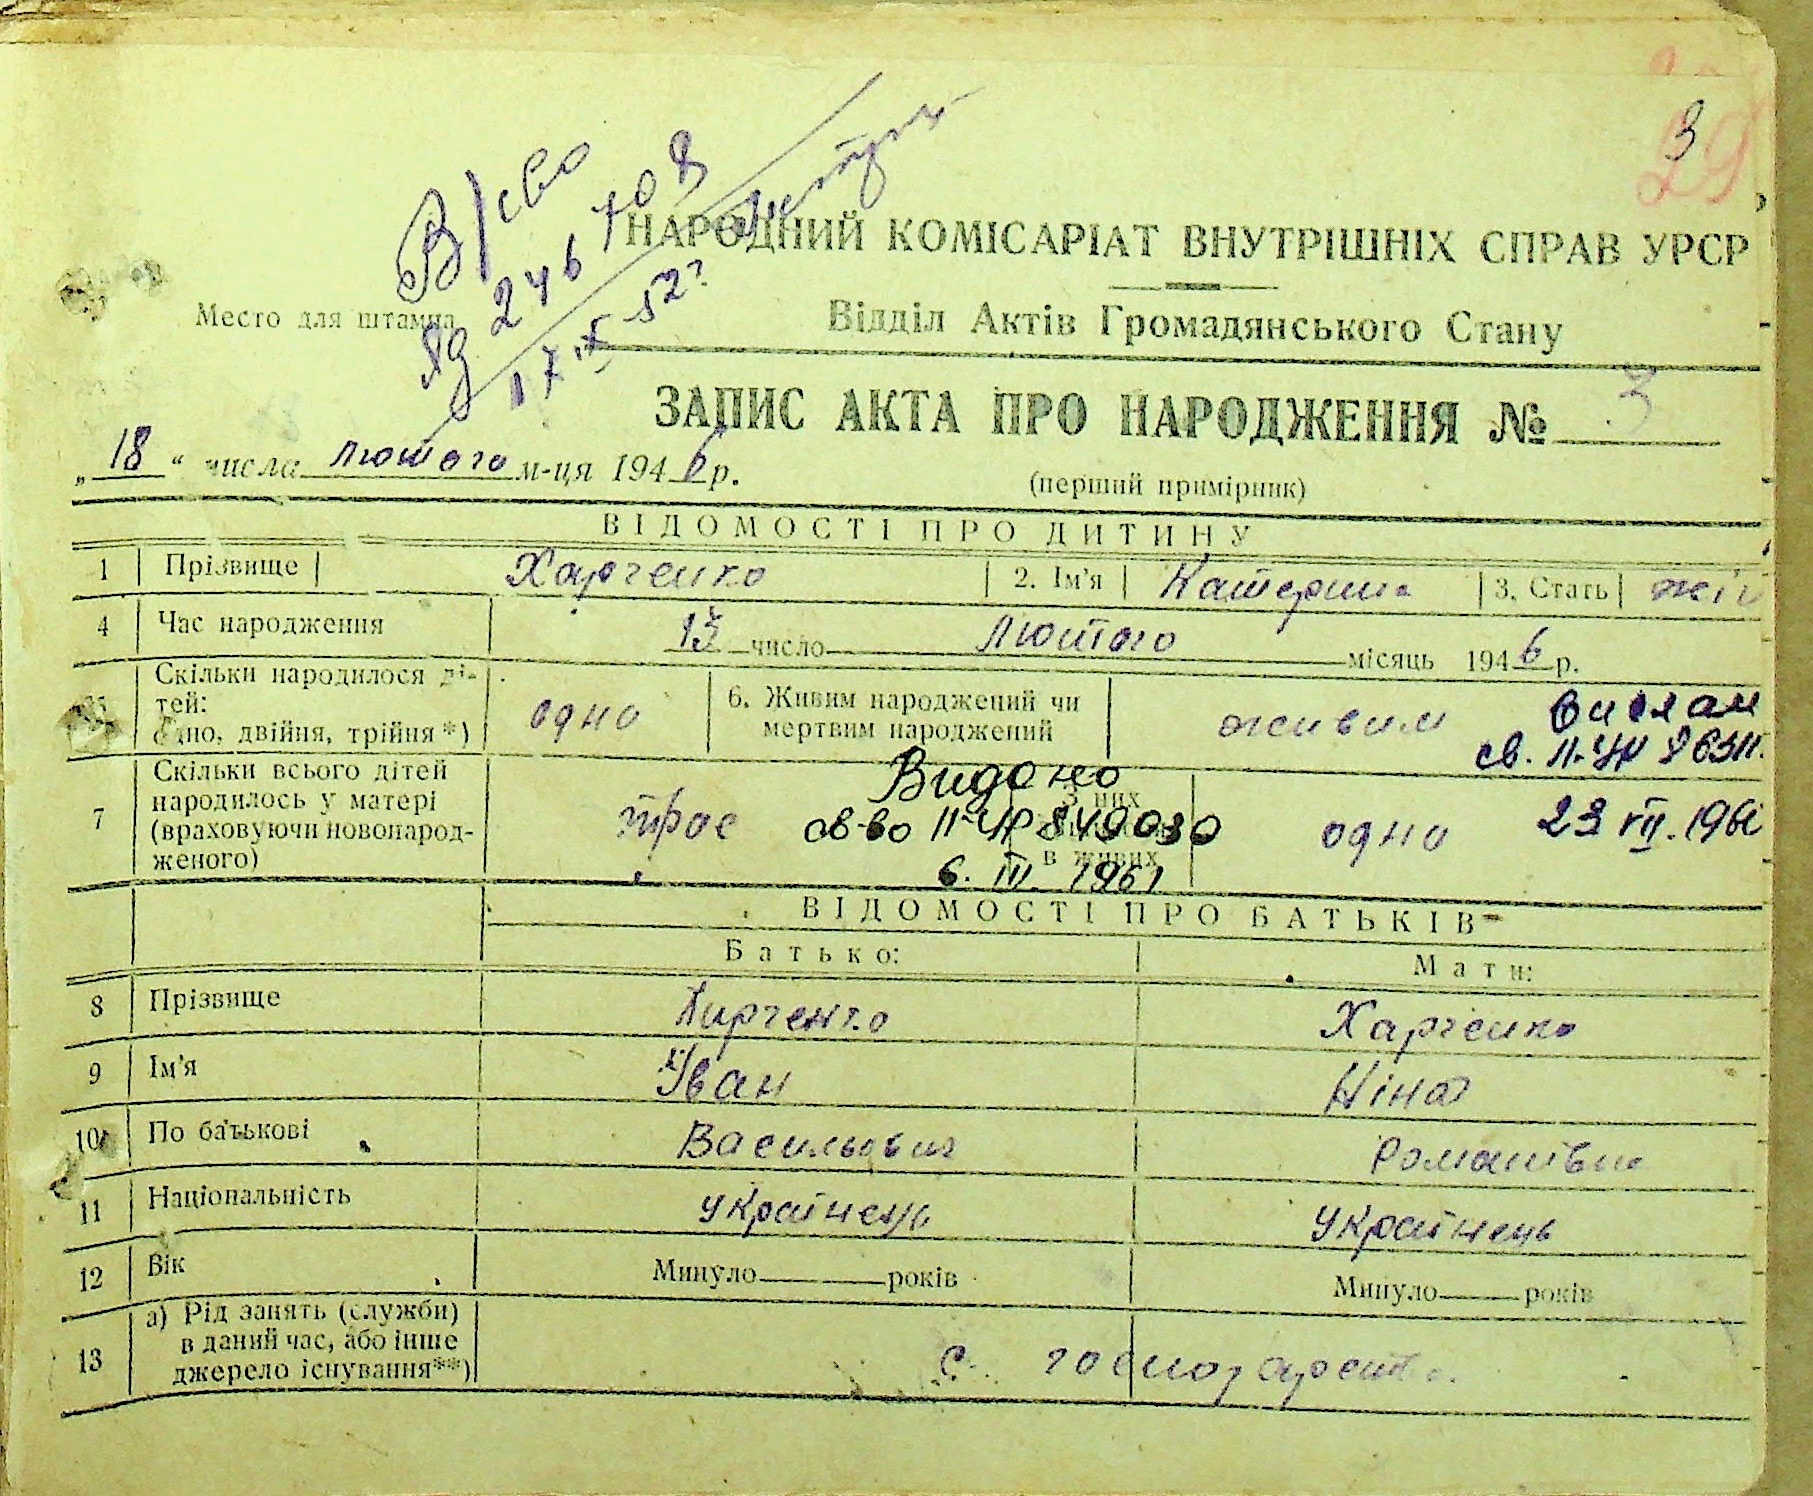 3
29
В/сво
ЯД 246709
17 ІХ 52?
НАРОДНИЙ КОМІСАРІАТ ВНУТРІШНІХ СПРАВ УРСР
Место для штампа
Відділ Актів Громадянського Стану
ЗАПИС АКТА ПРО НАРОДЖЕННЯ № 3
„18“ числа лютого м-ця 1946 р.
(перший примірник)
ВІДОМОСТІ ПРО ДИТИНУ
1 Прізвище Харченко 2. Ім'я Катерина 3. Стать жін
4 Час народження 13 число Лютого місяць 1946 р.
5 Скільки народилося ді-
тей:
одно, двійня, трійня*) одно
6. Живим народжений чи
мертвим народжений живим
св. ІІ-УР
23 VII. 196
7 Скільки всього дітей
народилось у матері
(враховуючи новонарод-
женого) троє
З них
в живих одно
Видано
св-во ІІ-УР 849030
6. III. 1961
ВІДОМОСТІ ПРО БАТЬКІВ
Батько: Мати:
8 Прізвище Харченко
9 Ім'я Іван Ніна
10 По батькові Васильович Романівна
11 Національність українець Українець
12 Вік Минуло років Минуло років
13 а) Рід занять (служби)
в даний час, або інше
джерело існування**) с. господарство